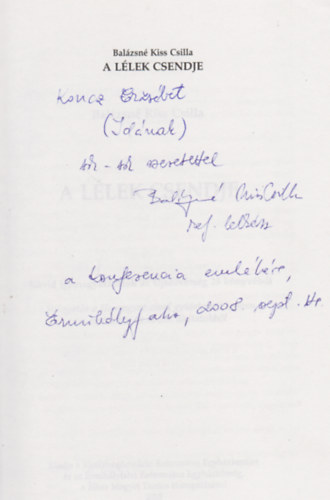 Balázsné Kiss Csilla
A LÉLEK CSENDJE
Koncz Erzsébet
(Idának)
sok-sok szeretettel
Balázsné Kiss Csilla
ref. lelkész
a konferencia emlékére,
Érmihályfalva, 2008. sept.
A LÉLEK CSENDJE